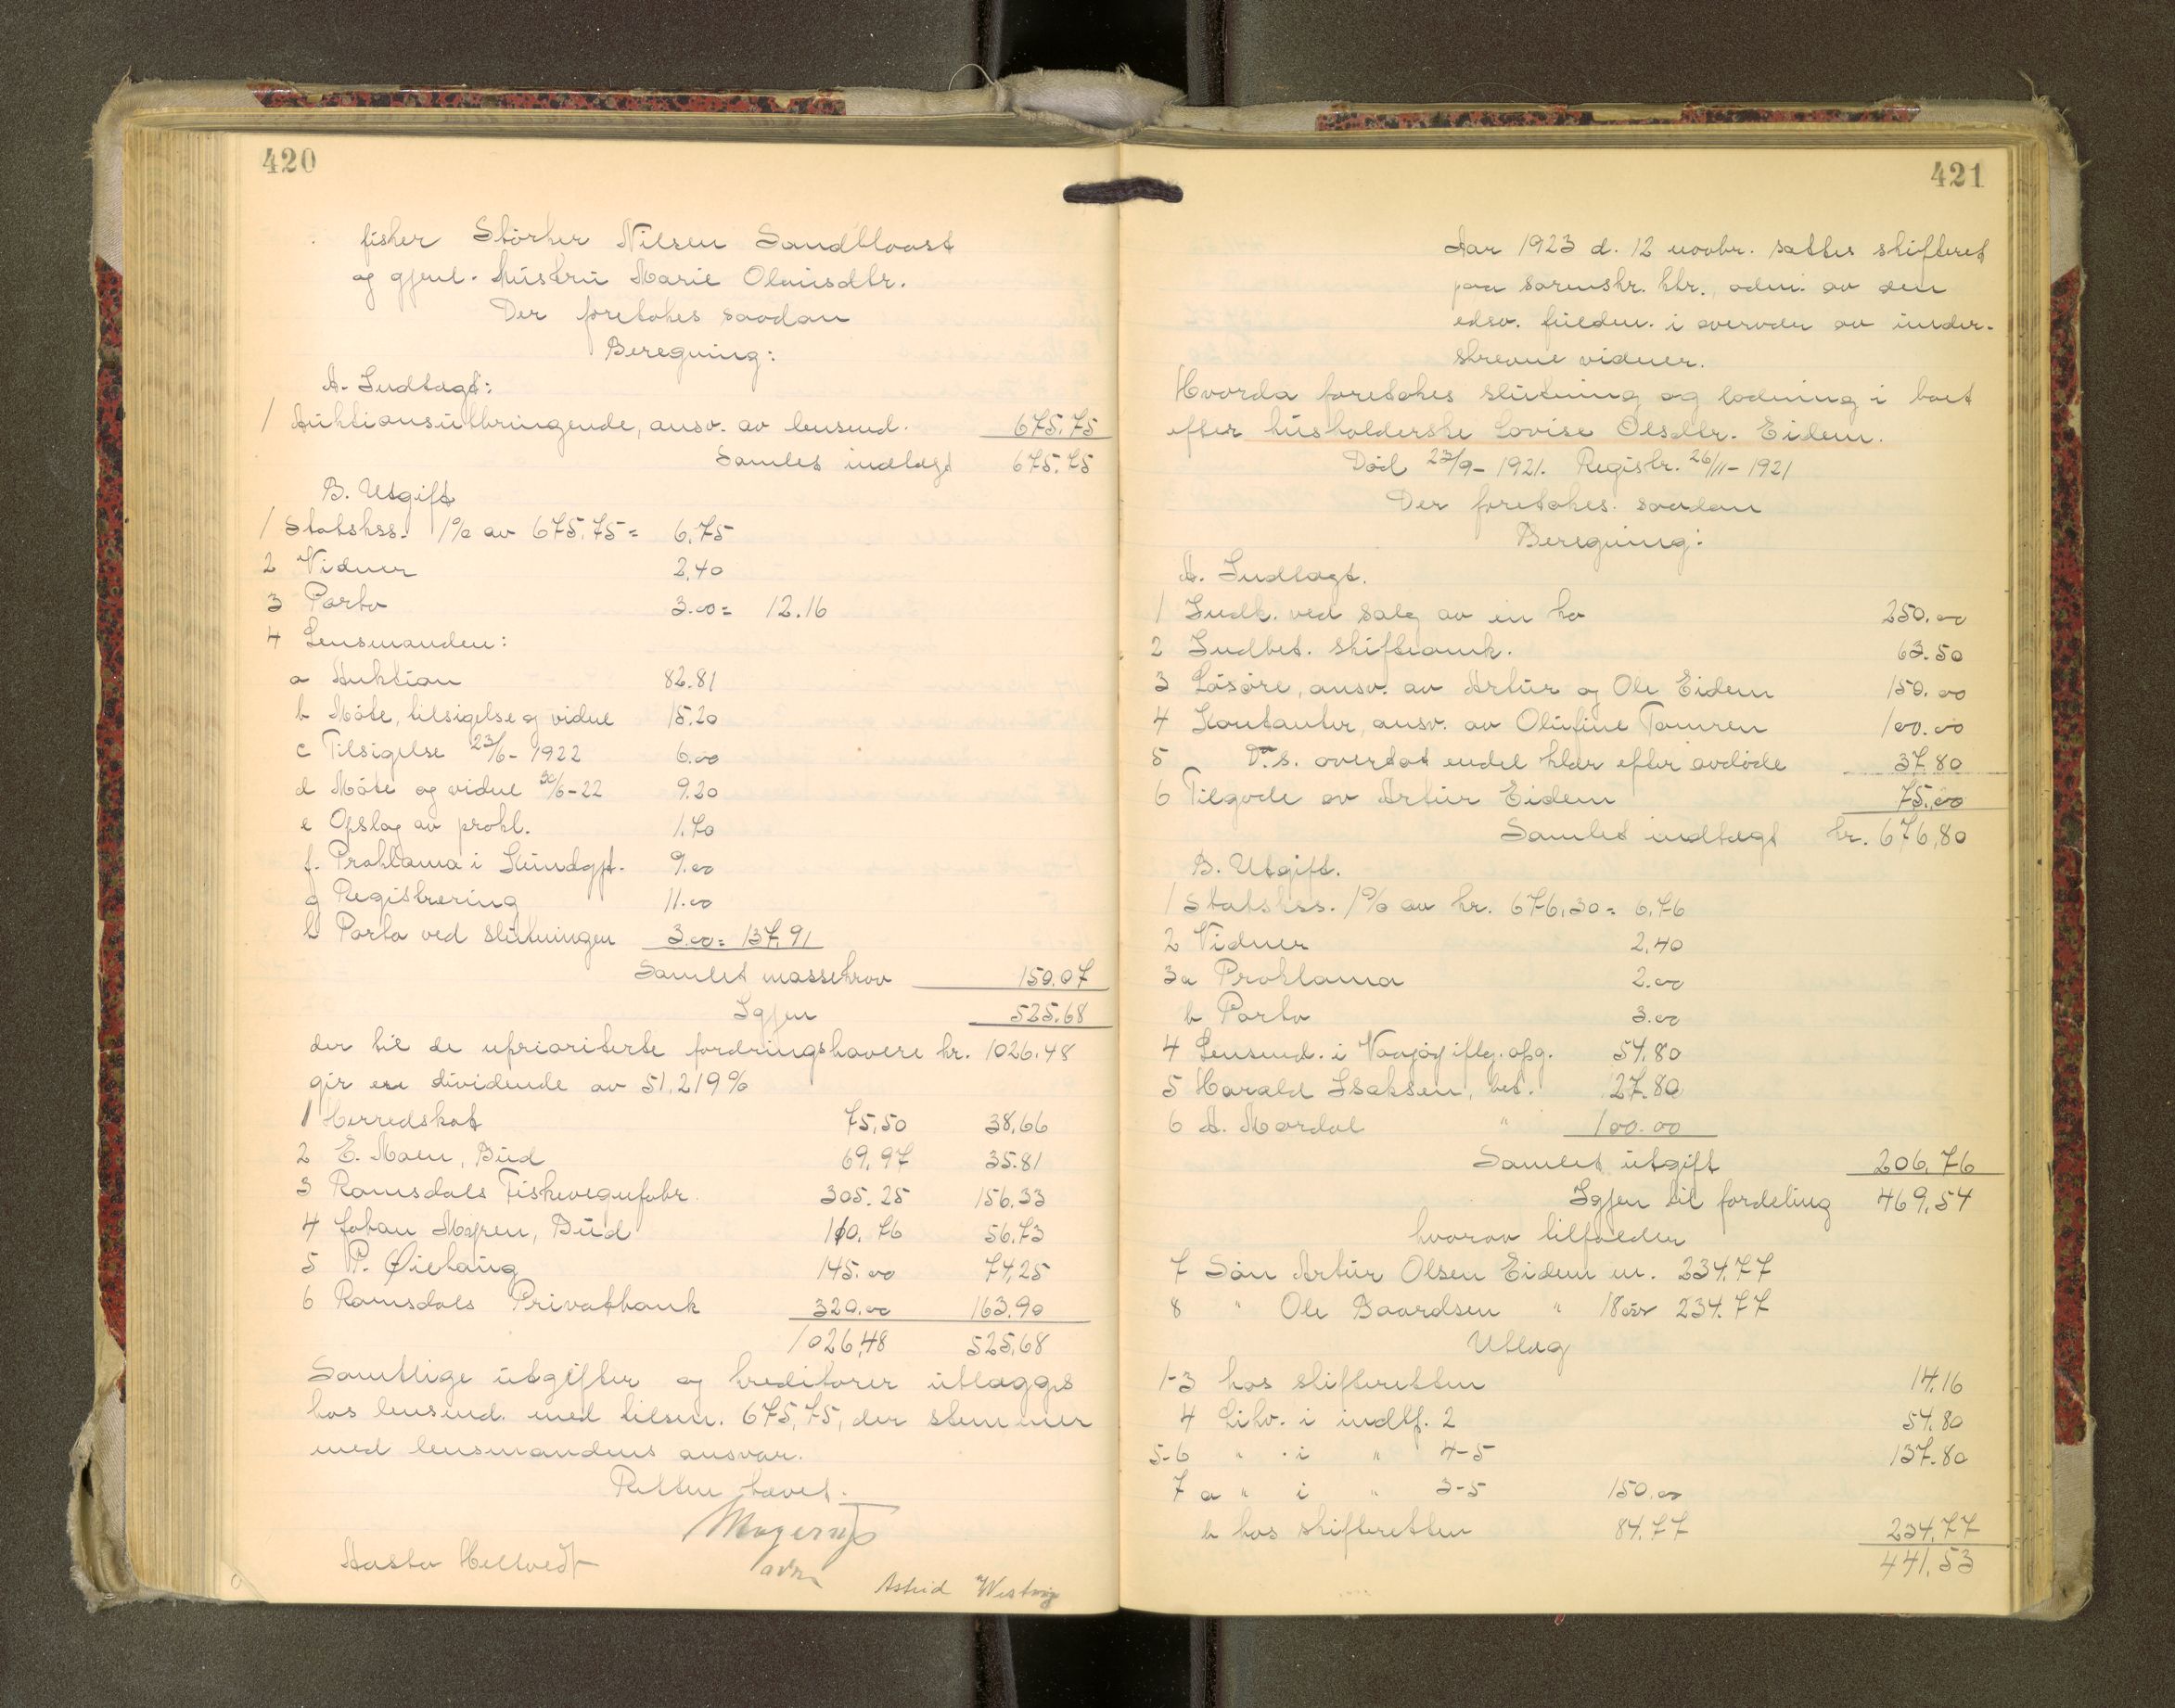 420
fisher Størker Nilsen Sandblaast
og gjenl. hustru Marie Olausdtr.
Der foretakes saadan
Beregning:
A. Indtægt:
1 Auktionsutbringende, ansv. av lensmd. 675.75
Samlet indtægt 675.75
B. Utgift
1 Statskss. 1% av 675.75 = 6.75
2 Vidner 2.40
3 Porto 3.00 = 12.16
4 Lensmanden:
a Auktion 82.81
b Møte, tilsigelse og vidne 15.20
c Tilsigelse 23/6-1922 6.00
d Møte og vidne 30/6-22 9.20
e Opslag av prokl. 1.70
f. Proklama i Kundgjt. 9.00
g Registrering 11.00
h Porto ved slutningen 3.00 = 137.91
Samlet massekrav 150.07
Igjen 525.68
der til de uprioriterte fordringshavere kr. 1026.48
gir en dividende av 51,219%
1 Herredskat 75,50 38,66
2 E. Moen, Bud 69.97 35.81
3 Romsdals Fiskevegnfabr. 305.25 156.33
4 Johan Myren, Bud 110.76 56.73
5 P. Øiehaug 145.00 74,25
6 Romsdals Privatbank 320.00 163.90
1026,48 525,68
Samtlige utgifter og kreditorer utlægges
hos lensmd. med tilsm. 675,75, der stemmer
med lensmandens ansvar.
Retten hævet.
Mayerup
Aasta Helivedt
Astrid Westvig
421
Aar 1923 d. 12 novbr. sattes skifteret
paa sorenskr. ktr., adm. av den
edsv. fuldm. i overvær av under-
skrevne vidner.
Hvorda foretokes slutning og lodning i boet
efter husholderske Lovise Olsdtr. Eidem.
Død 23/9-1921. Registr. 26/11-1921
Der foretokes saadan
Beregning:
A. Indtægt.
1 Indk. ved salg av en ko 250.00
2 Indbet. skifteomk. 63.50
3 Løsøre, ansv. av Artur og Ole Eidem 150.00
4 Kontanter, ansv. av Olufine Tomren 100.00
5 D.s. overtat endel klær efter avdøde 37.80
6 Tilgode av Artur Eidem 75.00
Samlet indtægt kr. 676,80
B. Utgift.
1 Statskss. 1% av kr. 676,30 = 6.76
2 Vidner 2.40
3a Proklama 2.00
b Porto 3.00
4 Lensmd. i Vaagøy iflg. opg. 54.80
5 Harald Isaksen, bet. 27.80
6 A. Mordal " 100.00
Samlet utgift 206,76
Igjen til fordeling 469,54
hvorav tilfalder
7 Søn Artur Olsen Eidem m. 234.77
8 " Ole Baardsen " 18 aar 234.77
Utlæg
1-3 hos skifteretten 14.16
4 Likv. i indtf. 2 54.80
5-6 " i " 4-5 137.80
7 a " i " 3-5 150.00
b hos skifteretten 84.77 234.77
441,53